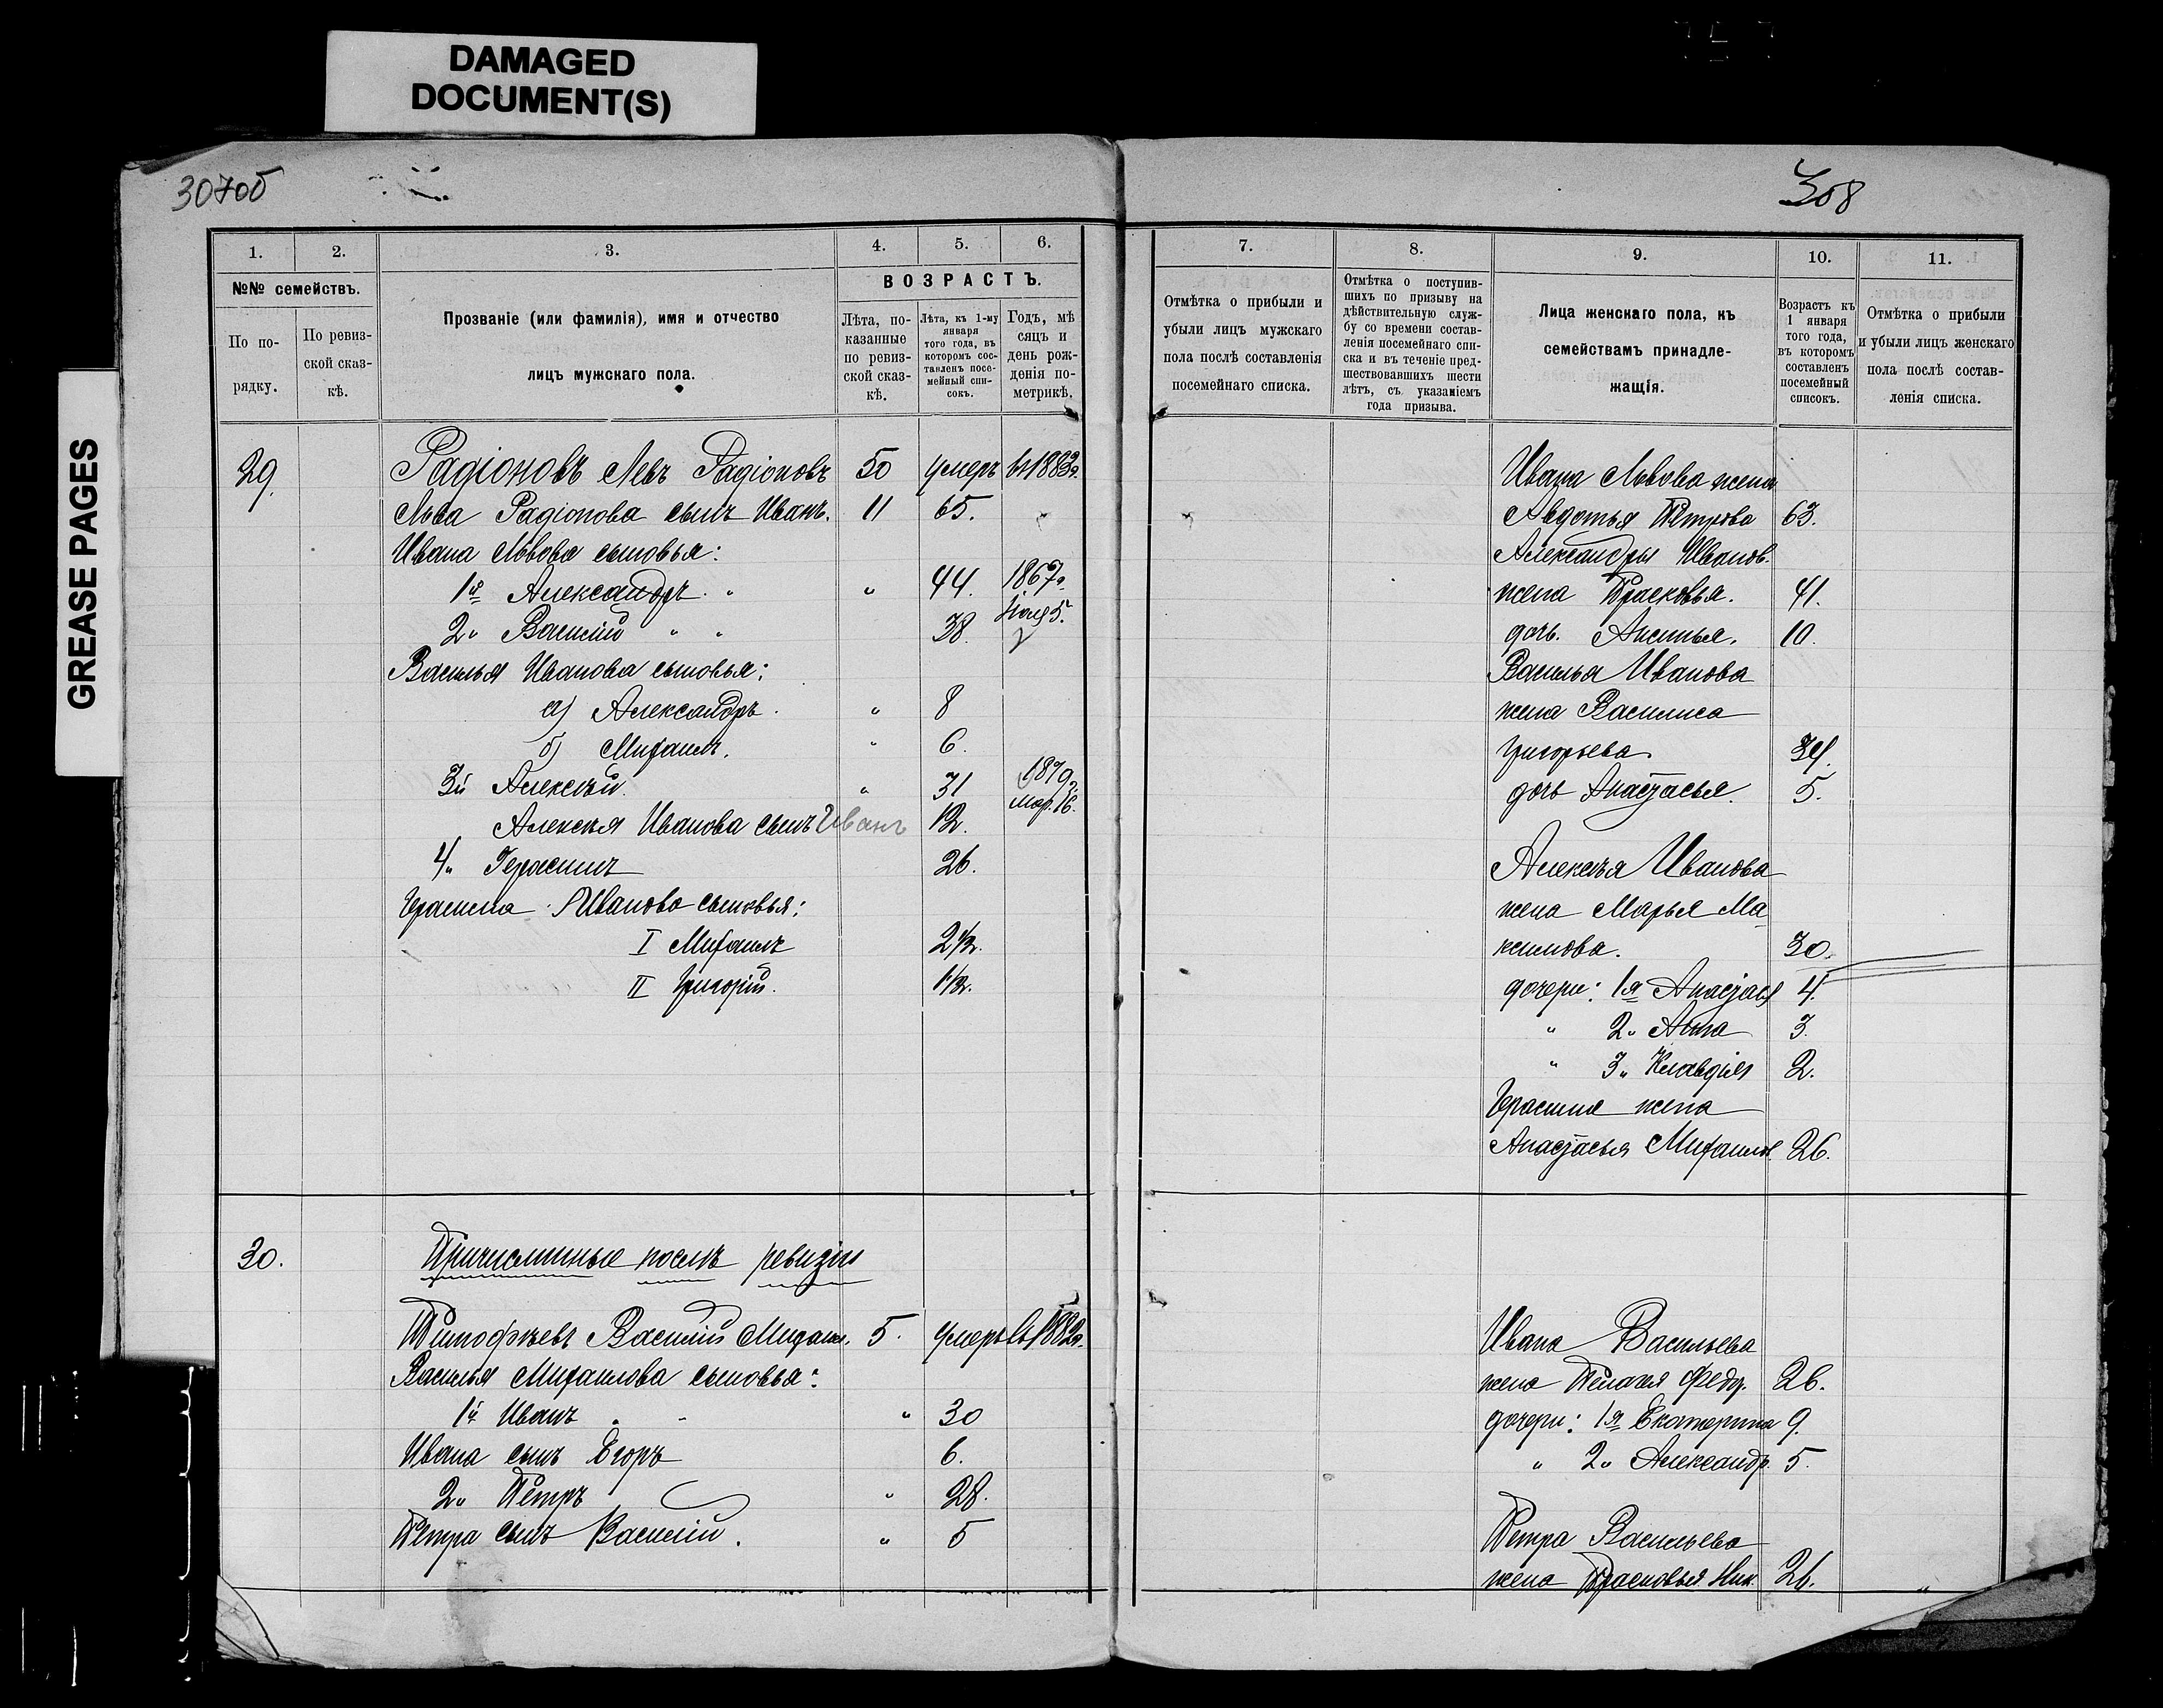 DAMAGED
DOCUMENT(S)
GREASE PAGES
307об
308
1.
2.
3.
4.
5.
6.
№№ семействъ.
По по-
рядку.
По ревиз-
ской сказ-
кѣ.
Прозваніе (или фамилія), имя и отчество
лицъ мужскаго пола.
ВОЗРАСТЪ.
Лѣта, по-
казанные
по ревиз-
ской сказ-
кѣ.
Лѣта, къ 1-му
января
того года, въ
которомъ сос-
тавленъ посе-
мейный спи-
сокъ.
Годъ, мѣ
сяцъ и
день рож-
денія по-
метрикѣ.
29.
Радіоновъ Левъ Радіоновъ 50 умеръ въ 1883г.
Льва Радіонова сынъ Иванъ. 11 65.
Ивана Львова сыновья:
1й Александръ. " " 44. 1867г.
Іюля 5.
2" Василій " " 38.
Василья Иванова сыновья:
а) Александръ. " 8
б) Михаилъ. " 6.
3й Алексѣй. " 31 1879г.
мар. 16.
Алексѣя Иванова сынъ Иванъ 12.
4" Герасимъ 26.
Герасима Иванова сыновья:
I Михаилъ 2½.
II Григорій. 1½.
30.
Причисленные послѣ ревизіи
Тимофѣевъ Василій Михаил. 5. умеръ въ 1882г.
Василья Михаилова сыновья:
1й Иванъ " " " 30
Ивана сынъ Егоръ 6.
2" Петръ " 28.
Петра сынъ Василій. " 5
7.
8.
9.
10.
11.
Отмѣтка о прибыли и
убыли лицъ мужскаго
пола послѣ составленія
посемейнаго списка.
Отмѣтка о поступив-
шихъ по призыву на
дѣйствительную служ-
бу со времени состав-
ленія посемейнаго спи-
ска и въ теченіе пред-
шествовавшихъ шести
лѣтъ, съ указаніемъ
года призыва.
Лица женскаго пола, къ
семействамъ принадле-
жащія.
Возрастъ къ
1 января
того года,
въ которомъ
составленъ
посемейный
списокъ.
Отмѣтка о прибыли
и убыли лицъ женскаго
пола послѣ состав-
ленія списка.
Ивана Львова жена
Авдотья Петрова 63.
Александры Иванов.
жена Прасковья. 41.
дочь. Аксинья. 10.
Василья Иванова
жена Василиса
Григорьева.
дочь Анастасья. 5.
Алексѣя Иванова
жена Марья Ма
ксимова. 30.
дочери: 1я Анастасья 4.
" 2" Анна 3.
" 3" Клавдія 2.
Герасима жена
Анастасья Михаилов. 26.
Ивана Васильева
жена Пелагея Федор. 26.
дочери: 1я Екатерина 9.
" 2" Александр. 5.
Петра Васильева
жена Прасковья Ник. 26. "